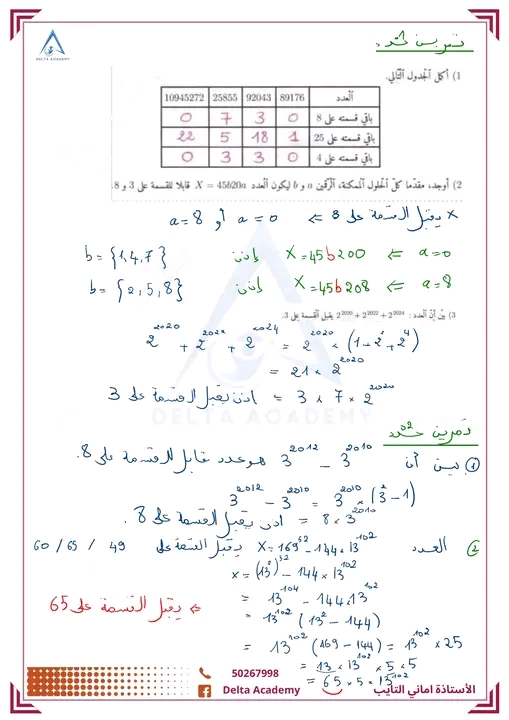 DELTA ACADEMY
تمرين عدد
1) أكمل الجدول التالي.
العدد 89176 92043 25855 10945272
باقي قسمته على 8 0 3 7 0
باقي قسمته على 25 1 18 5 22
باقي قسمته على 4 0 3 3 0
2) أوجد، مقدّما كلّ الحلول الممكنة، الرّقمين a و b ليكون العدد X = 45b20a قابلا للقسمة على 3 و 8.
X يقبل القسمة على 8 ⇐ a=0 أو a=8
a=0 ⇐ X=45b200 إذن b={1,4,7}
a=8 ⇐ X=45b208 إذن b={2,5,8}
3) بيّن أنّ العدد : 2²⁰²⁰ + 2²⁰²² + 2²⁰²⁴ يقبل القسمة على 3.
2²⁰²⁰ + 2²⁰²² + 2²⁰²⁴ = 2²⁰²⁰ × (1+2²+2⁴)
= 21 × 2²⁰²⁰
= 3 × 7 × 2²⁰²⁰ اذن يقبل القسمة على 3
DELTA ACADEMY
تمرين عدد 02
1) بين أن 3²⁰¹² − 3²⁰¹⁰ هو عدد قابل للقسمة على 8.
3²⁰¹² − 3²⁰¹⁰ = 3²⁰¹⁰ × (3² − 1)
= 8 × 3²⁰¹⁰ اذن يقبل القسمة على 8.
2) العدد X = 169⁵² − 144 × 13¹⁰² يقبل القسمة على 49 / 65 / 60
X = (13²)⁵² − 144 × 13¹⁰²
= 13¹⁰⁴ − 144 × 13¹⁰²
= 13¹⁰² (13² − 144)
= 13¹⁰² (169 − 144) = 13¹⁰² × 25
= 13 × 13¹⁰¹ × 5 × 5
= 65 × 5 × 13¹⁰¹
⇐ يقبل القسمة على 65
50267998
Delta Academy
الأستاذة اماني التايب